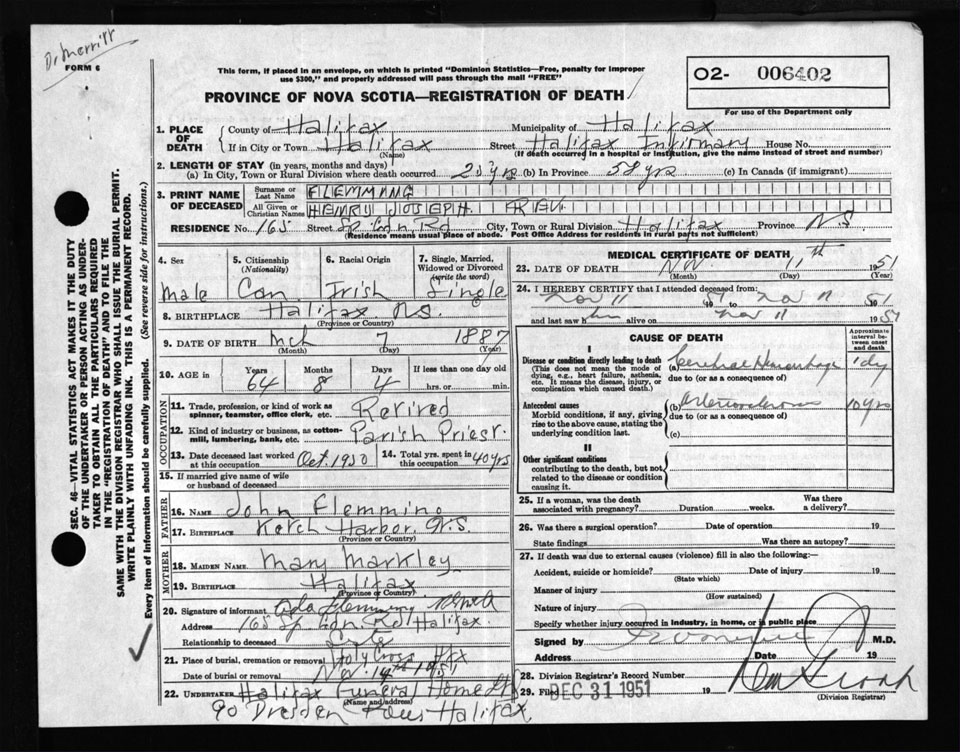 Dr Merritt
FORM 6
This form, if placed in an envelope, on which is printed "Dominion Statistics—Free, penalty for improper
use $300," and properly addressed will pass through the mail "FREE"
PROVINCE OF NOVA SCOTIA—REGISTRATION OF DEATH
O2- 006402
For use of the Department only
1. PLACE OF DEATH County of Halifax Municipality of Halifax
If in City or Town Halifax (Name) Street Halifax Infirmary House No.
(If death occurred in a hospital or institution, give the name instead of street and number)
2. LENGTH OF STAY (in years, months and days)
(a) In City, Town or Rural Division where death occurred 20 yrs (b) In Province 58 yrs (c) In Canada (if immigrant)
3. PRINT NAME OF DECEASED Surname or Last Name FLEMMING
All Given or Christian Names HENRY JOSEPH REV.
RESIDENCE No. 165 Street Sp Gdn Rd City, Town or Rural Division Halifax Province NS
(Residence means usual place of abode. Post Office Address for residents in rural parts not sufficient)
SEC. 46—VITAL STATISTICS ACT MAKES IT THE DUTY
OF THE UNDERTAKER OR PERSON ACTING AS UNDER-
TAKER TO OBTAIN ALL THE PARTICULARS REQUIRED
IN THE "REGISTRATION OF DEATH" AND TO FILE THE
SAME WITH THE DIVISION REGISTRAR WHO SHALL ISSUE THE BURIAL PERMIT.
WRITE PLAINLY WITH UNFADING INK. THIS IS A PERMANENT RECORD.
Every item of information should be carefully supplied. (See reverse side for instructions.)
4. Sex Male
5. Citizenship (Nationality) Can.
6. Racial Origin Irish
7. Single, Married, Widowed or Divorced (write the word) Single
8. BIRTHPLACE Halifax N.S.
(Province or Country)
9. DATE OF BIRTH Mch 7 1887
(Month) (Day) (Year)
10. AGE in Years 64 Months 8 Days 4 If less than one day old hrs. or min.
OCCUPATION
11. Trade, profession, or kind of work as spinner, teamster, office clerk, etc. Retired
12. Kind of industry or business, as cotton-mill, lumbering, bank, etc. Parish Priest
13. Date deceased last worked at this occupation Oct. 1950 14. Total yrs. spent in this occupation 40 yrs
15. If married give name of wife or husband of deceased
FATHER
16. NAME John Flemming
17. BIRTHPLACE Ketch Harbor N.S.
(Province or Country)
MOTHER
18. MAIDEN NAME Mary Markley
19. BIRTHPLACE Halifax
(Province or Country)
20. Signature of informant Ada Flemming
Address 165 Sp Gdn Rd Halifax.
Relationship to deceased
21. Place of burial, cremation or removal Holy Cross Hfx
Date of burial or removal Nov. 14th 1951
22. UNDERTAKER Halifax Funeral Home Ltd
(Name and address)
90 Dresden Row Halifax.
MEDICAL CERTIFICATE OF DEATH
23. DATE OF DEATH Nov. 11th 1951
(Month) (Day) (Year)
24. I HEREBY CERTIFY that I attended deceased from:
Nov 11 1951 to Nov 11 1951
and last saw him alive on Nov 11 1951
CAUSE OF DEATH
Approximate interval between onset and death
I
Disease or condition directly leading to death (a) Cerebral Hemorrhage 1 dy
(This does not mean the mode of dying, e.g., heart failure, asthenia, etc. It means the disease, injury, or complication which caused death.)
due to (or as a consequence of)
Antecedent causes (b) Arteriosclerosis 10 yrs
Morbid conditions, if any, giving rise to the above cause, stating the underlying condition last.
due to (or as a consequence of)
(c)
II
Other significant conditions
contributing to the death, but not related to the disease or condition causing it.
25. If a woman, was the death associated with pregnancy? Duration weeks. Was there a delivery?
26. Was there a surgical operation? Date of operation 19
State findings Was there an autopsy?
27. If death was due to external causes (violence) fill in also the following:—
Accident, suicide or homicide? Date of injury 19
(State which)
Manner of injury
(How sustained)
Nature of injury
Specify whether injury occurred in industry, in home, or in public place
Signed by M.D.
Address Date 19
28. Division Registrar's Record Number
29. Filed DEC 31 1951 19
(Division Registrar)